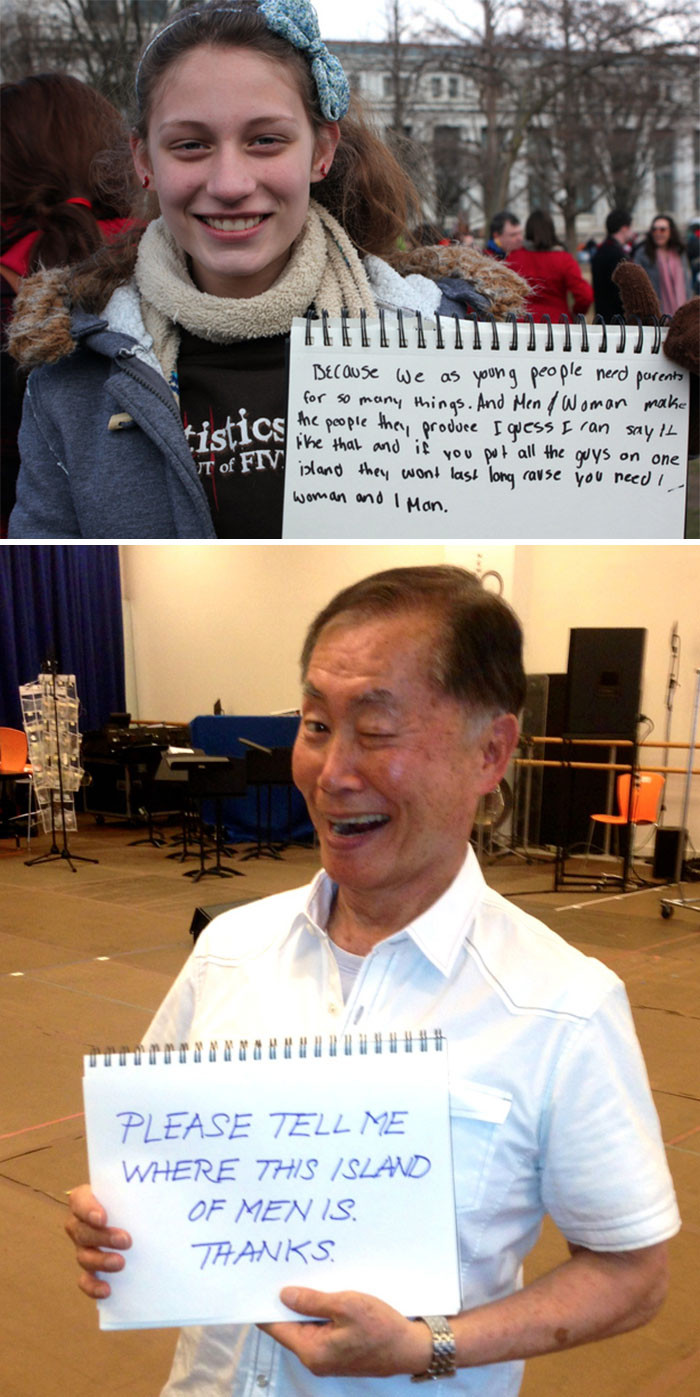 Because we as young people need parents
for so many things. And Men & Woman make
the people they produce I guess I can say it
like that and if you put all the guys on one
island they wont last long cause you need 1
woman and 1 Man.
tistics
UT of FIV
PLEASE TELL ME
WHERE THIS ISLAND
OF MEN IS.
THANKS.